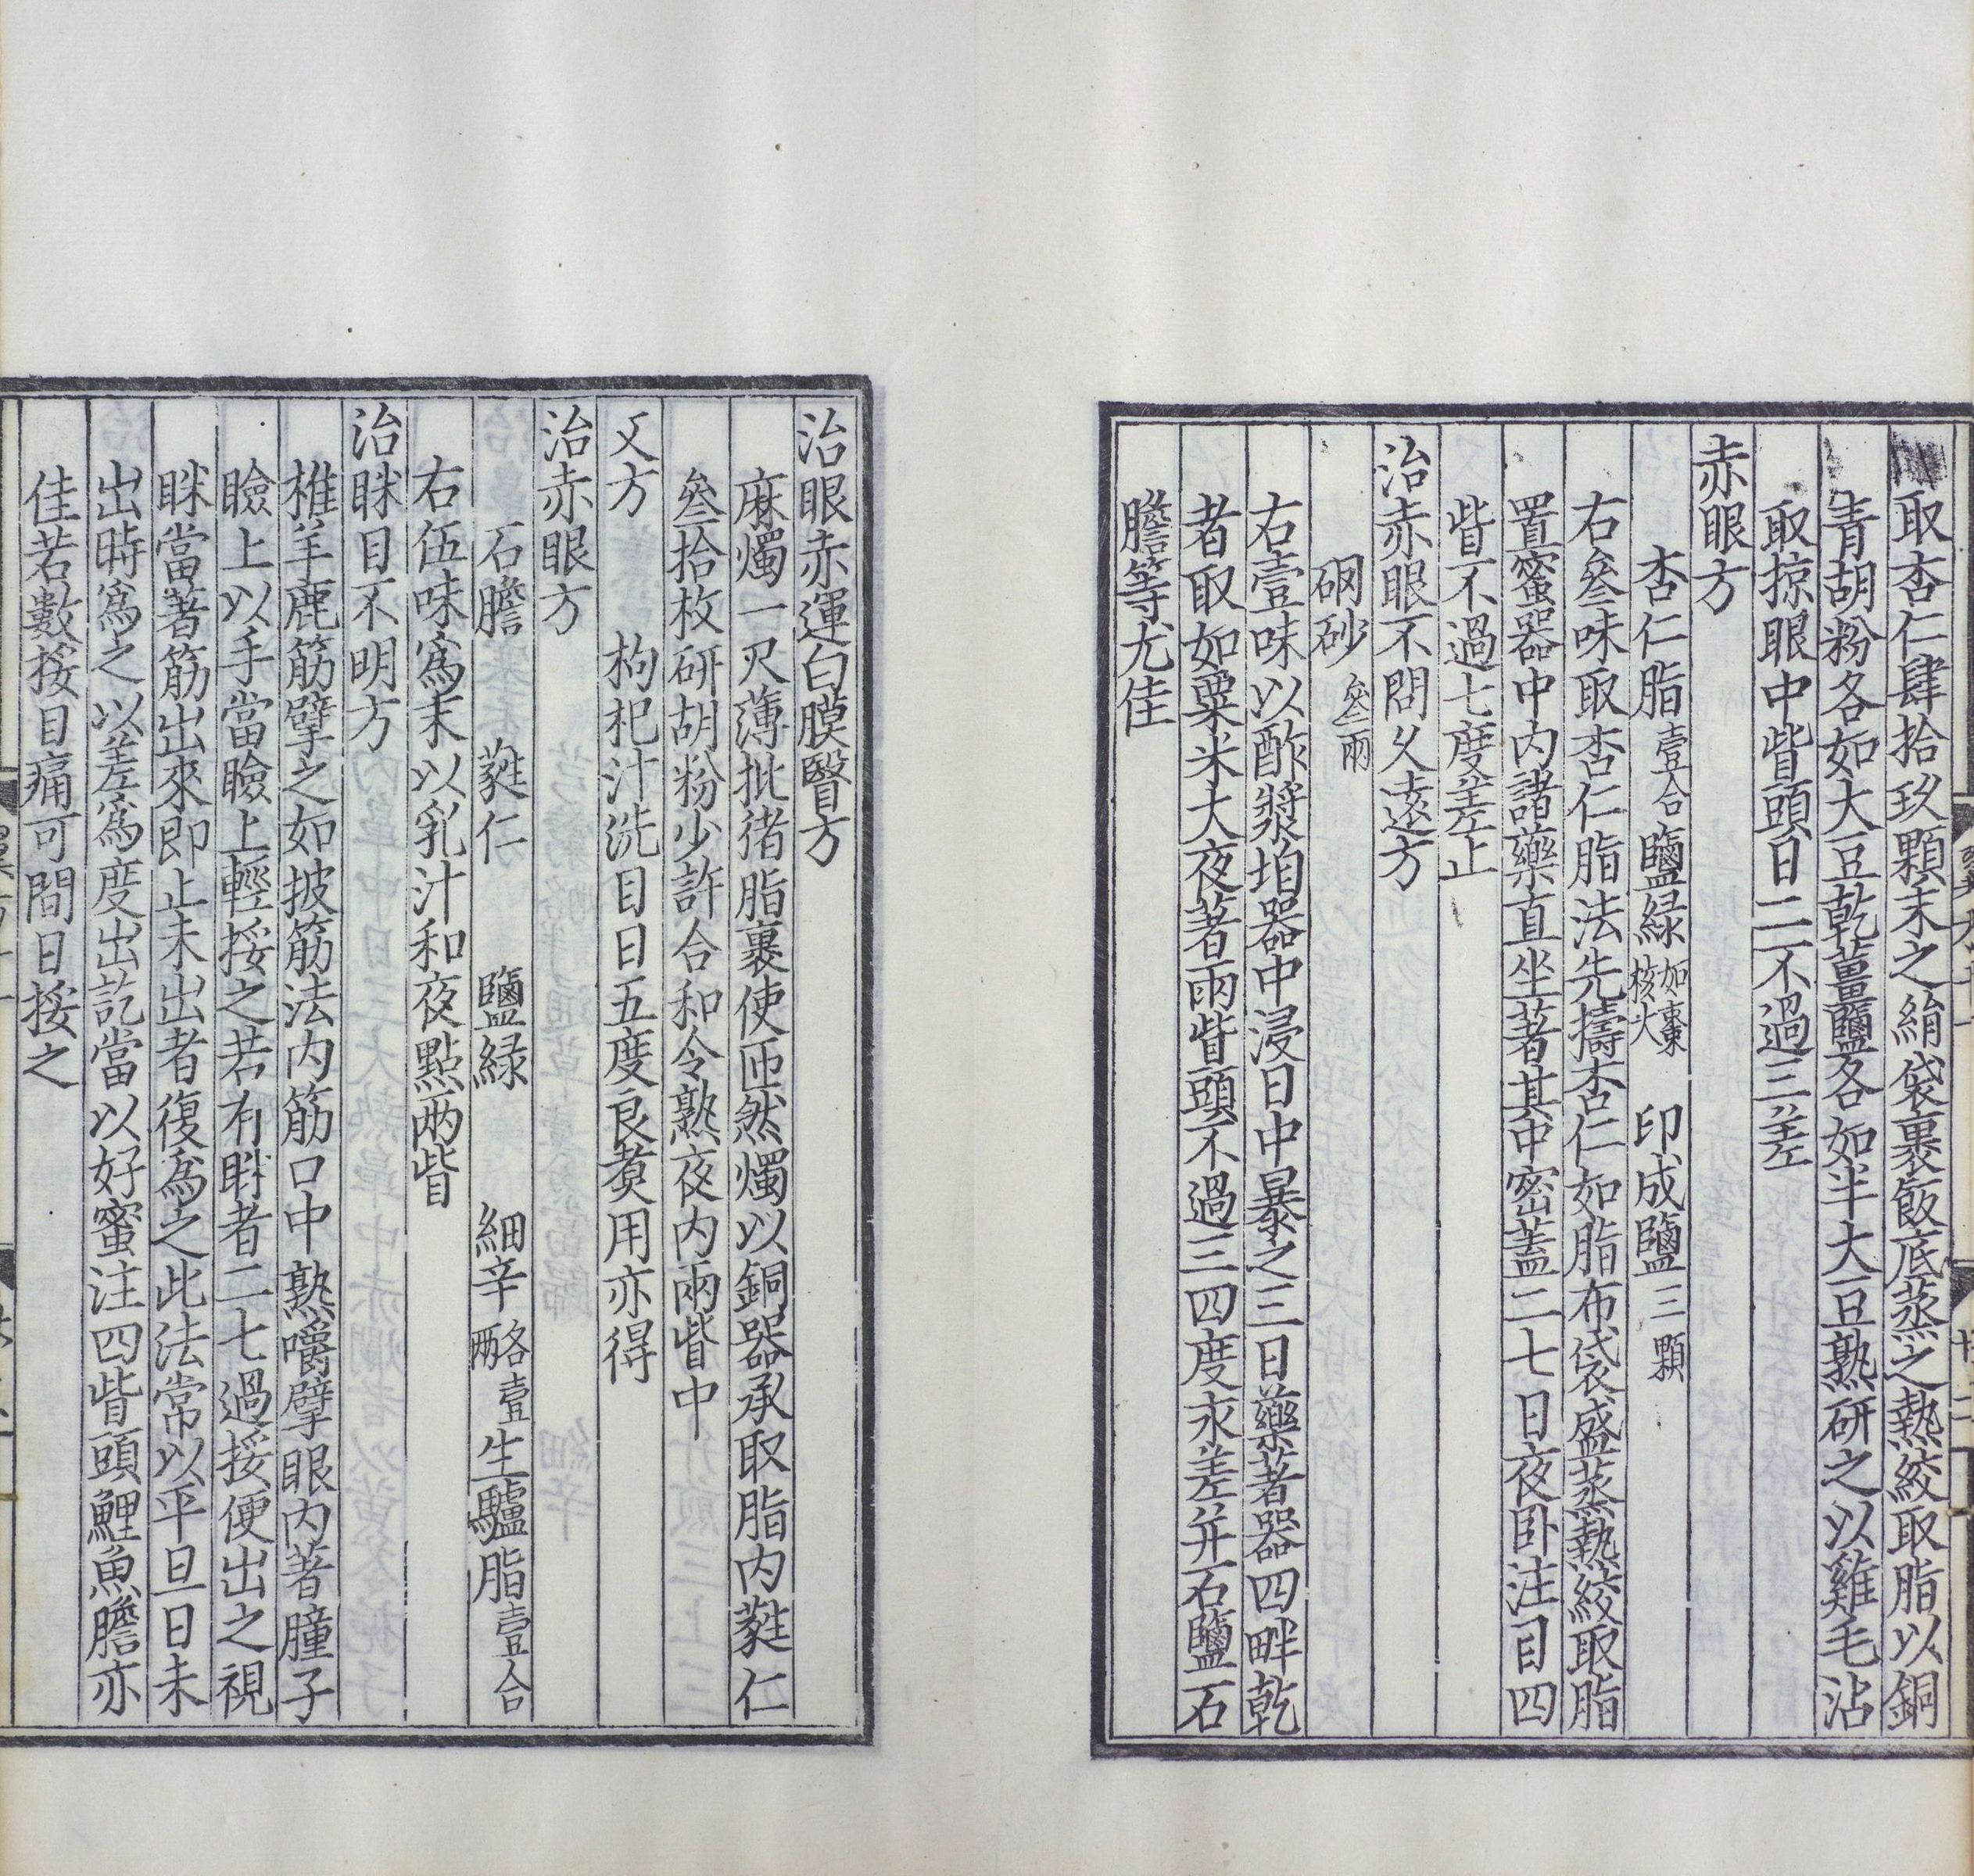 取杏仁肆拾玖顆末之絹袋裹飯底蒸之熱絞取脂以銅
青胡粉各如大豆乾薑鹽各如半大豆熟研之以雞毛沾
取掠眼中眥頭日二不過三差
赤眼方
杏仁脂壹合鹽緑如棗核大印成鹽三顆
右叄味取杏仁脂法先擣杏仁如脂布袋盛蒸熱絞取脂
置蜜器中内諸藥直坐著其中密蓋二七日夜卧注目四
眥不過七度差止
治赤眼不問久遠方
硇砂叄兩
右壹味以酢漿垍器中浸日中暴之三日藥著器四畔乾
者取如粟米大夜著兩眥頭不過三四度永差并石鹽石
膽等尤佳
治眼赤運白膜翳方
麻燭一尺薄批猪脂裹使匝然燭以銅器承取脂内蕤仁
叄拾枚研胡粉少許合和令熟夜内兩眥中
又方枸杞汁洗目日五度良煑用亦得
治赤眼方
石膽蕤仁鹽緑細辛各壹兩生驢脂壹合
右伍味爲末以乳汁和夜點兩眥
治眯目不明方
椎羊鹿筋擘之如披筋法内筋口中熟嚼擘眼内著瞳子
瞼上以手當瞼上輕挼之若有眯者二七過挼便出之視
眯當著筋出來即止未出者復爲之此法常以平旦日未
出時爲之以差爲度出訖當以好蜜注四眥頭鯉魚膽亦
佳若數挼目痛可間日挼之